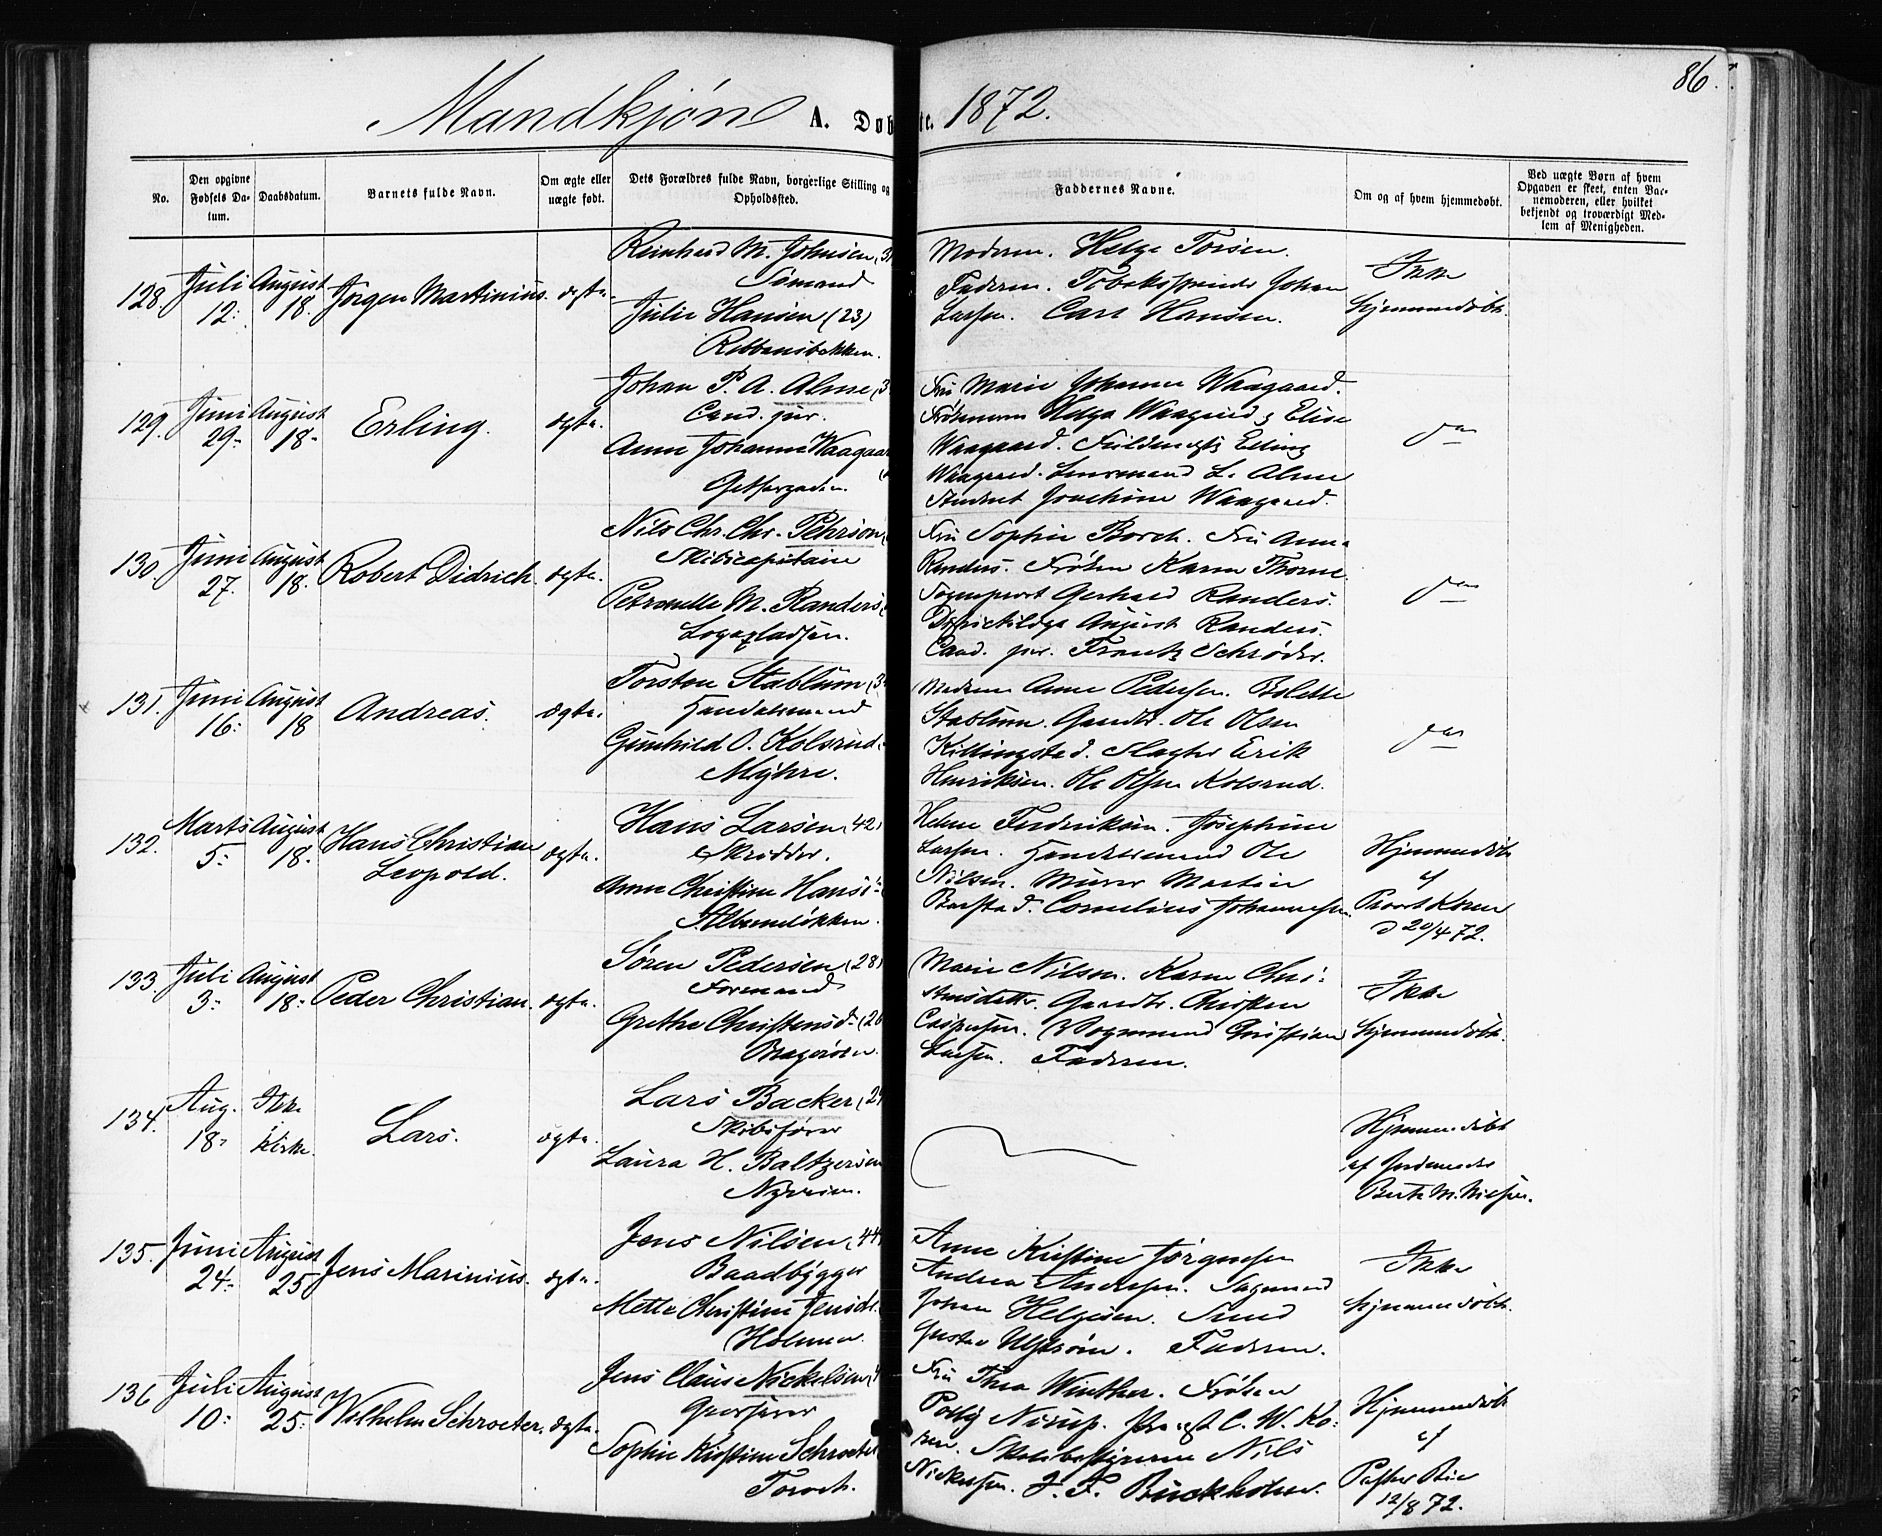 86.
Mandkjøn A. Døbte. 1872.
No.
Den opgivne Fødsels Datum.
Daabsdatum.
Barnets fulde Navn.
Om ægte eller uægte født.
Dets Forældres fulde Navn, borgerlige Stilling og Opholdssted.
Faddernes Navne.
Om og af hvem hjemmedøbt.
Ved uægte Børn af hvem Opgaven er skeet, enten Barnemoderen, eller hvilket bekjendt og troværdigt Medlem af Menigheden.
128. Juli 12. August 18. Jørgen Martinius. ægte.
Reinhard M. Johnsen
Sømand
Julie Hansen (23)
Moderen. Helge Torsen.
Faderen. Johan
Larsen. Carl Hansen.
Ikke
hjemmedøbt.
129. Juni 29. August 18. Erling. ægte.
Johan P. A. Alme
Cand. jur.
Anne Johanne Waagaa
Fru Marie Johanne Waagaard.
Frøknerne Helga Waagaard & Elise
Waagaard. Erling
Waagaard. Lensmand L. Alme
Student Joachim Waagaard.
do
130 Juni 27. August 18. Robert Didrich. ægte.
Nils Chr. Chr. Pehrson
Skibscapitain
Petronelle M. Randers
Fru Sophie Borch. Fru Anna
Randers. Frøken Karen Thorne.
Gerhard Randers.
August Randers.
Cand. jur. Frantz Schrøder.
do
131. Juni 16. August 18 Andreas. ægte.
Torsten Stablum
Handelsmand
Gunhild O. Kolsrud
Myhre.
Anne Pedersen. Bolette
Stablum. Gaardbr. Ole Olsen
Killingstad. Slagter Erik
Henriksen. Ole Olsen Kolsrud.
do
132. Marts 5. August 18. Hans Christian Leopold. ægte.
Hans Larsen (42)
Skrædder.
Anne Christine Hans
Helene Fredriksen. Josephine
Larsen. Handelsmand Ole
Nilsen. Murer Martin
Barstad. Cornelius Johannesen.
Hjemmedøbt
af
Provst Koren
d 20/4 72.
133. Juli 3. August 18. Peder Christian. ægte.
Søren Pedersen (28)
Formand
Grethe Christensd. (26
Bragerøen.
Marie Nilsen. Karen Chri-
stensdatter. Gaardbr. Christen
Caspersen. Vognmand Christian
Larsen. Faderen.
Ikke
hjemmedøbt.
134. Aug. 18. Ikke i Kirke. Lars. ægte.
Lars Backer
Skibsfører
Laura H. Baltzersen
Nyveien.
Hjemmedøbt
af Jordmoder
Berte M. Nielsen.
135. Juni 24. August 25. Jens Marinius. ægte.
Jens Nilsen (44
Baadbygger
Mette Christine Jensdt.
Holmen.
Anne Kristine Jørgensen
Andrea Andersen. Sagmand
Johan Helgesen. Smed
Gustav Ulstrøm. Faderen.
Ikke
hjemmedøbt.
136 Juli 10. August 25. Wilhelm Schroeter. ægte.
Jens Claus Nickelsen
Sophie Kristine Schroeter
Torvet.
Fru Thea Winther. Frøken
Polly Nirup. Provst C. W. Ko-
ren. Skolebestyrerne Nils
Nickelsen. J. F. Buckholm.
Hjemmedøbt
af
Pastor Bie
12/8 72.